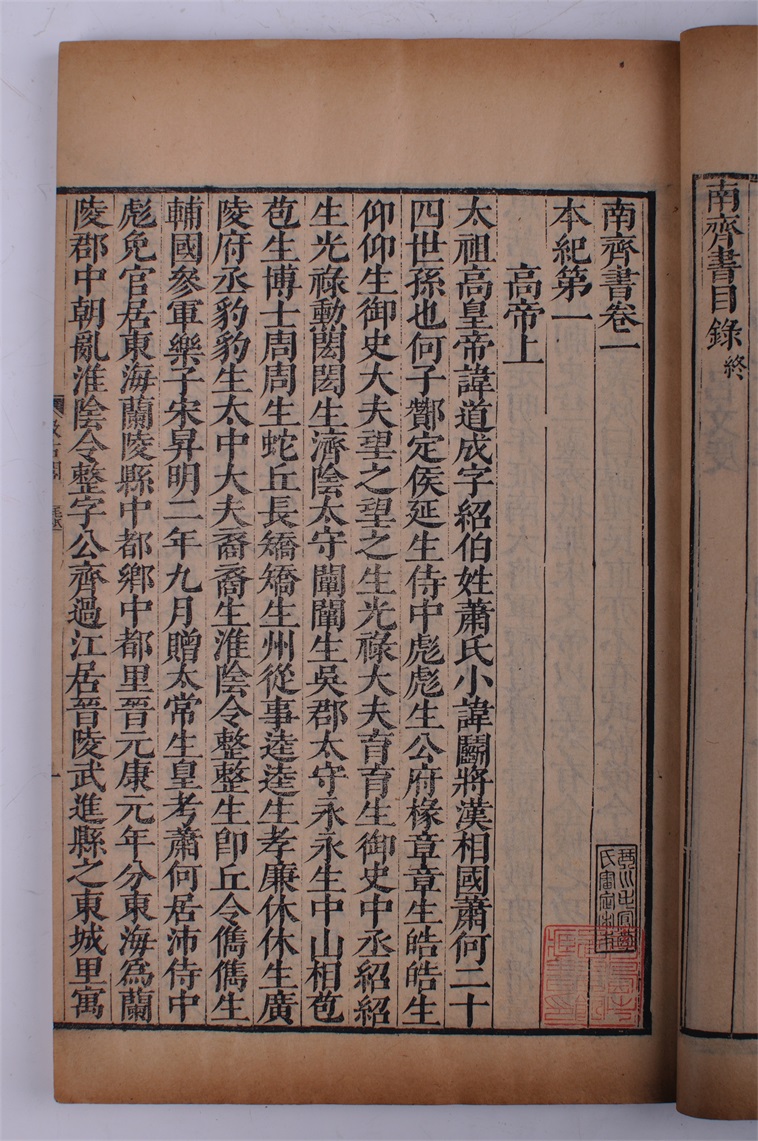 南齊書目錄終
南齊書卷一
本紀第一
高帝上
太祖高皇帝諱道成字紹伯姓蕭氏小諱鬭將漢相國蕭何二十
四世孫也何子酇定侯延生侍中彪彪生公府椽章章生皓皓生
仰仰生御史大夫望之望之生光祿大夫育育生御史中丞紹紹
生光祿勳閎閎生濟陰太守闡闡生吳郡太守永永生中山相苞
苞生博士周周生蛇丘長矯矯生州從事逵逵生孝廉休休生廣
陵府丞豹豹生太中大夫裔裔生淮陰令整整生卽丘令儁儁生
輔國參軍樂子宋昇明二年九月贈太常生皇考蕭何居沛侍中
彪免官居東海蘭陵縣中都鄉中都里晉元康元年分東海為蘭
陵郡中朝亂淮陰令整字公齊過江居晉陵武進縣之東城里寓